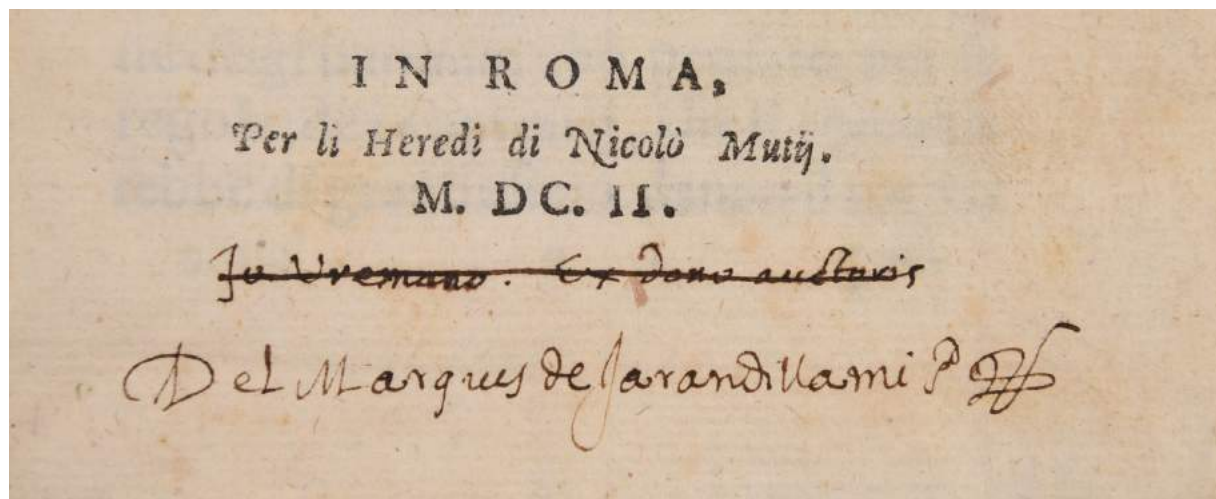 IN ROMA,
Per li Heredi di Nicolò Mutij.
M. DC. II.
Jo Uremano. Ex dono auctoris
Del Marques de Jarandilla mi Sr